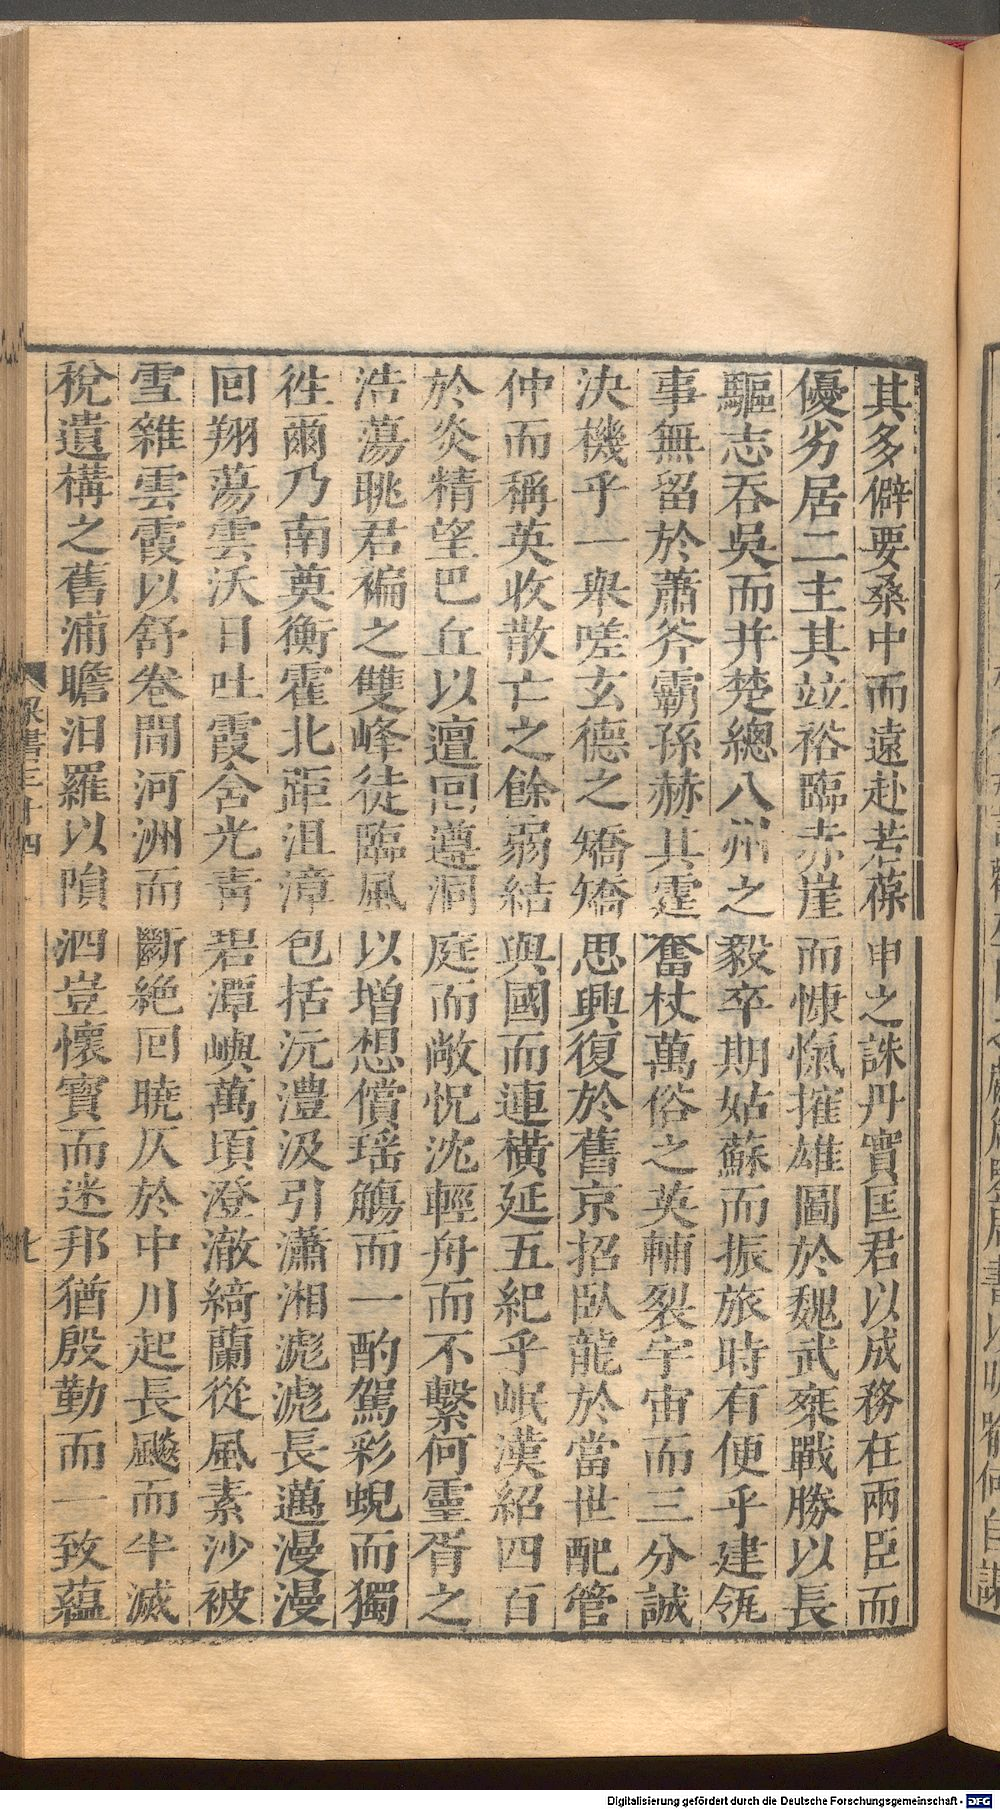 其多僻要桑中而遠赴若葆申之誅丹實匡君以成務在兩臣而
優劣居二主其竝裕臨赤崖而慷慨摧雄圖於魏武乘戰勝以長
驅志吞吳而并楚總八州之毅卒期姑蘇而振旅時有便乎建瓴
事無留於蕭斧霸孫赫其霆奮杖萬俗之英輔裂宇宙而三分誠
決機乎一舉嗟玄德之矯矯思興復於舊京招臥龍於當世配管
仲而稱英收散亡之餘弱結與國而連橫延五紀乎岷漢紹四百
於炎精望巴丘以邅回遵洞庭而敞怳沈輕舟而不繫何靈胥之
浩蕩眺君褊之雙峰徒臨風以增想償瑶觴而一酌駕彩蜺而獨
徃爾乃南奠衡霍北距沮漳包括沅澧汲引瀟湘滮滮長邁漫漫
回翔蕩雲沃日吐霞含光靑碧潭嶼萬頃澄澈綺蘭從風素沙被
雪雜雲霞以舒卷間河洲而斷絶回曉仄於中川起長飈而半滅
稅遺構之舊浦瞻汨羅以隕泗豈懷寶而迷邦猶殷勤而一致蘊
梁書三十四
七
Digitalisierung gefördert durch die Deutsche Forschungsgemeinschaft - DFG